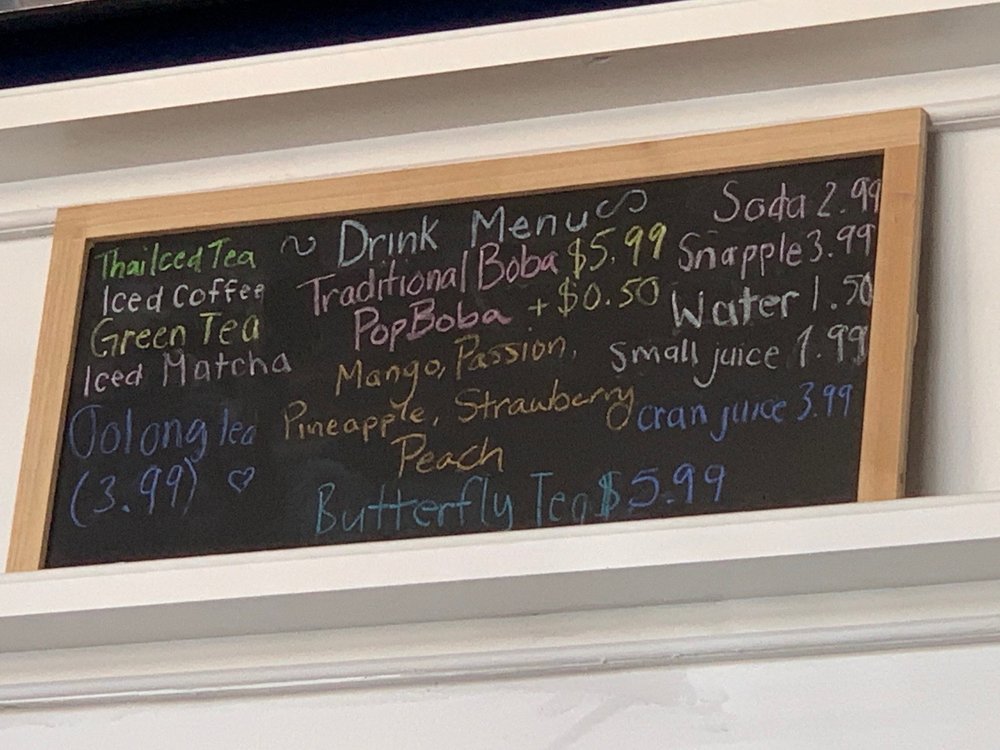 ~ Drink Menu ~
Thai Iced Tea
Iced Coffee
Green Tea
Iced Matcha
Oolong tea
(3.99) ♡
Traditional Boba $5.99
Pop Boba + $0.50
Mango, Passion,
Pineapple, Strawberry
Peach
Butterfly Tea $5.99
Soda 2.99
Snapple 3.99
Water 1.50
Small juice 1.99
cran juice 3.99